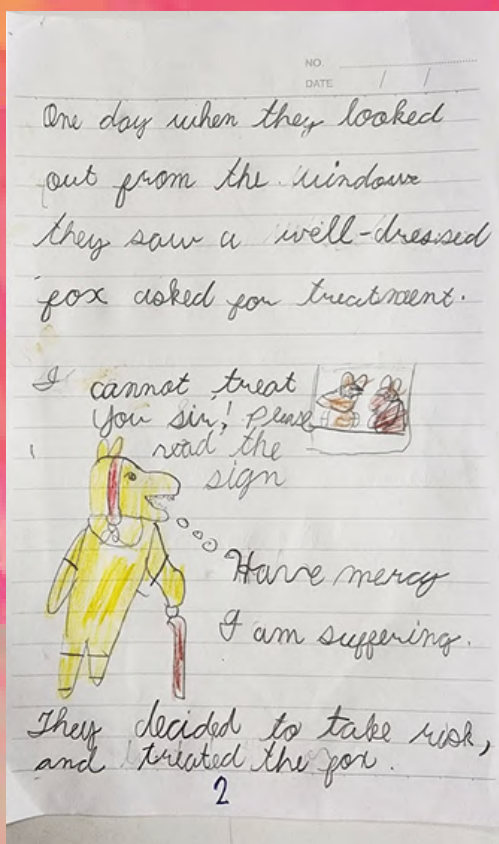 NO.
DATE / /
One day when they looked
out from the window
they saw a well-dressed
fox asked for treatment.
I cannot treat
you sir! Please
read the
sign
Have mercy
I am suffering.
They decided to take risk,
and treated the fox.
2